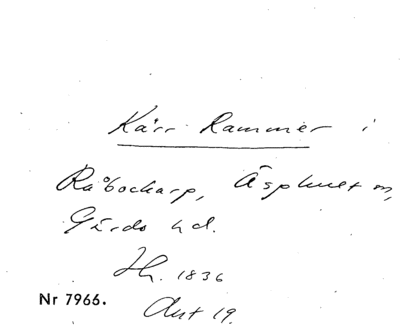 Kärr Rammer i
Råbockarp, Äsphult sn,
Gärds hd.
Hr. 1836
Nr 7966.
Ant 19.